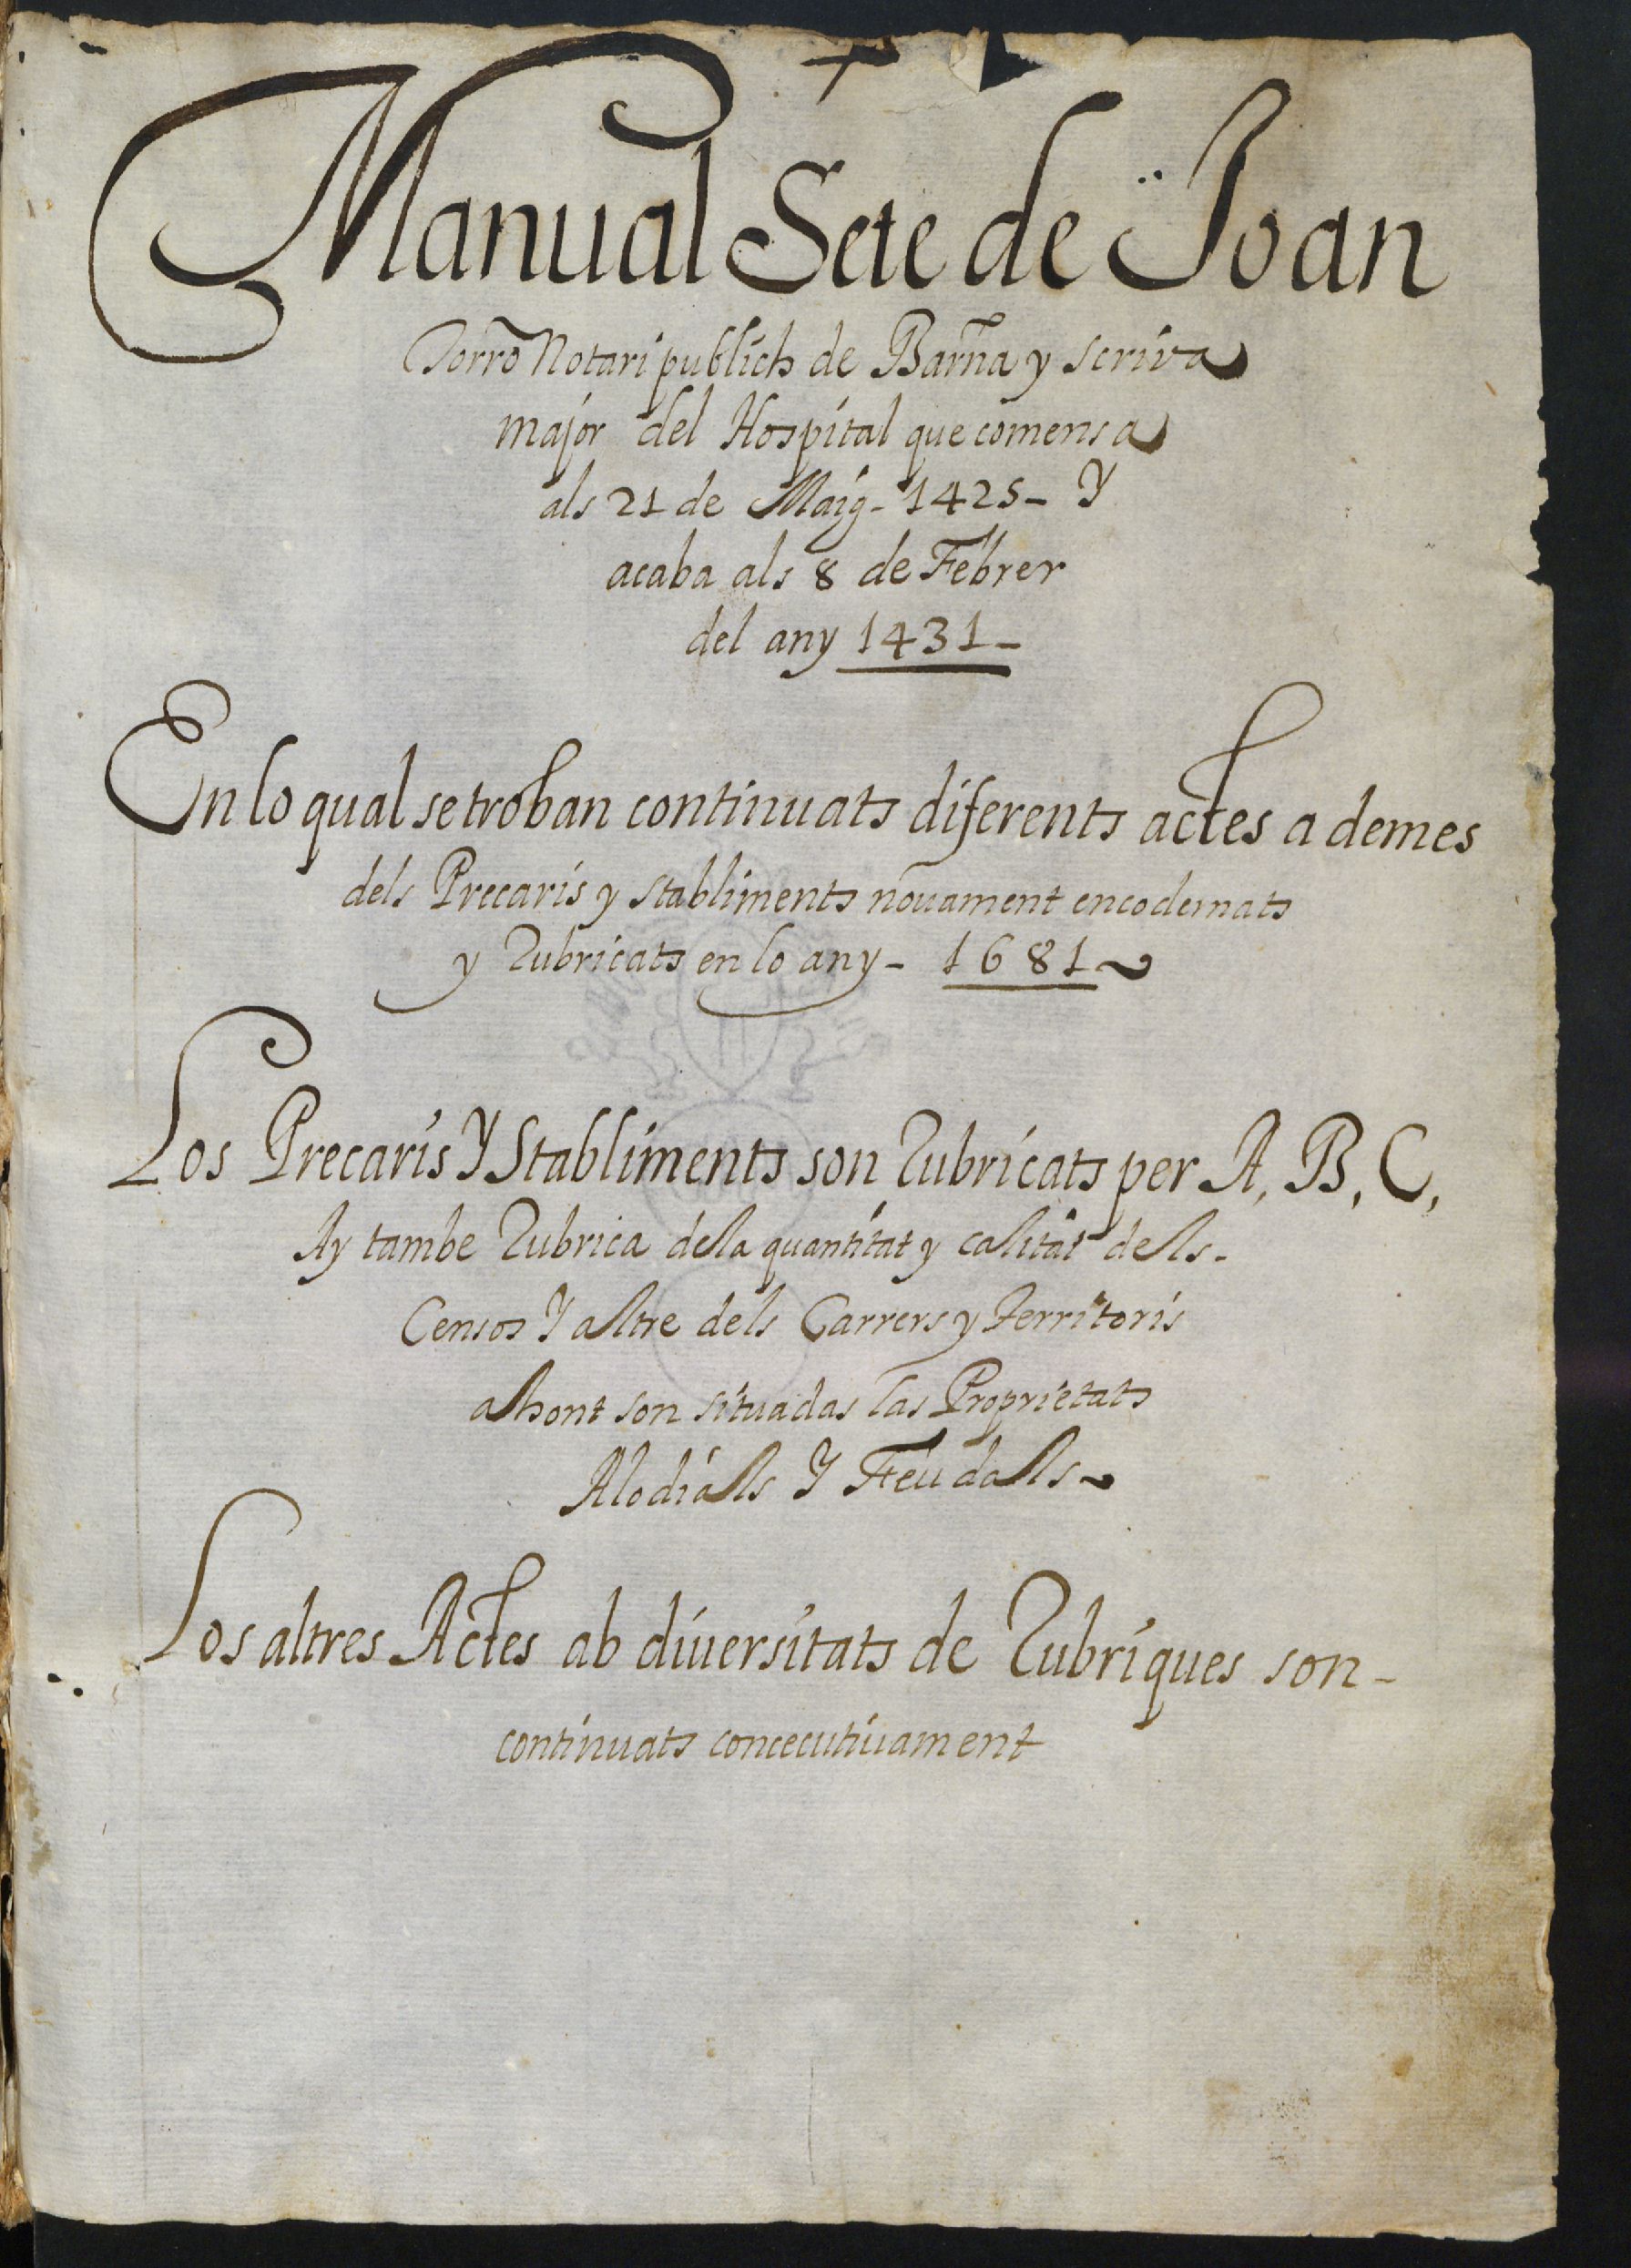 Manual Sete de Joan
Torro Notari publich de Barña y scriva
major del Hospital que comensa
als 21 de Maig - 1425 - Y
acaba als 8 de Febrer
del any 1431 -
En lo qual se troban continuats diferents actes a demes
dels Precaris y stabliments novament encodernats
y Rubricats en lo any - 1681
Los Precaris Y Stabliments son Rubricats per A, B, C,
Ay tambe Rubrica dela quantitat y calitat dels -
Censos Y altre dels Carrers y Territoris
ahont son situadas las Proprietats
Alodials Y Feudals
Los altres Actes ab diversitats de Rubriques son -
continuats concecutivament